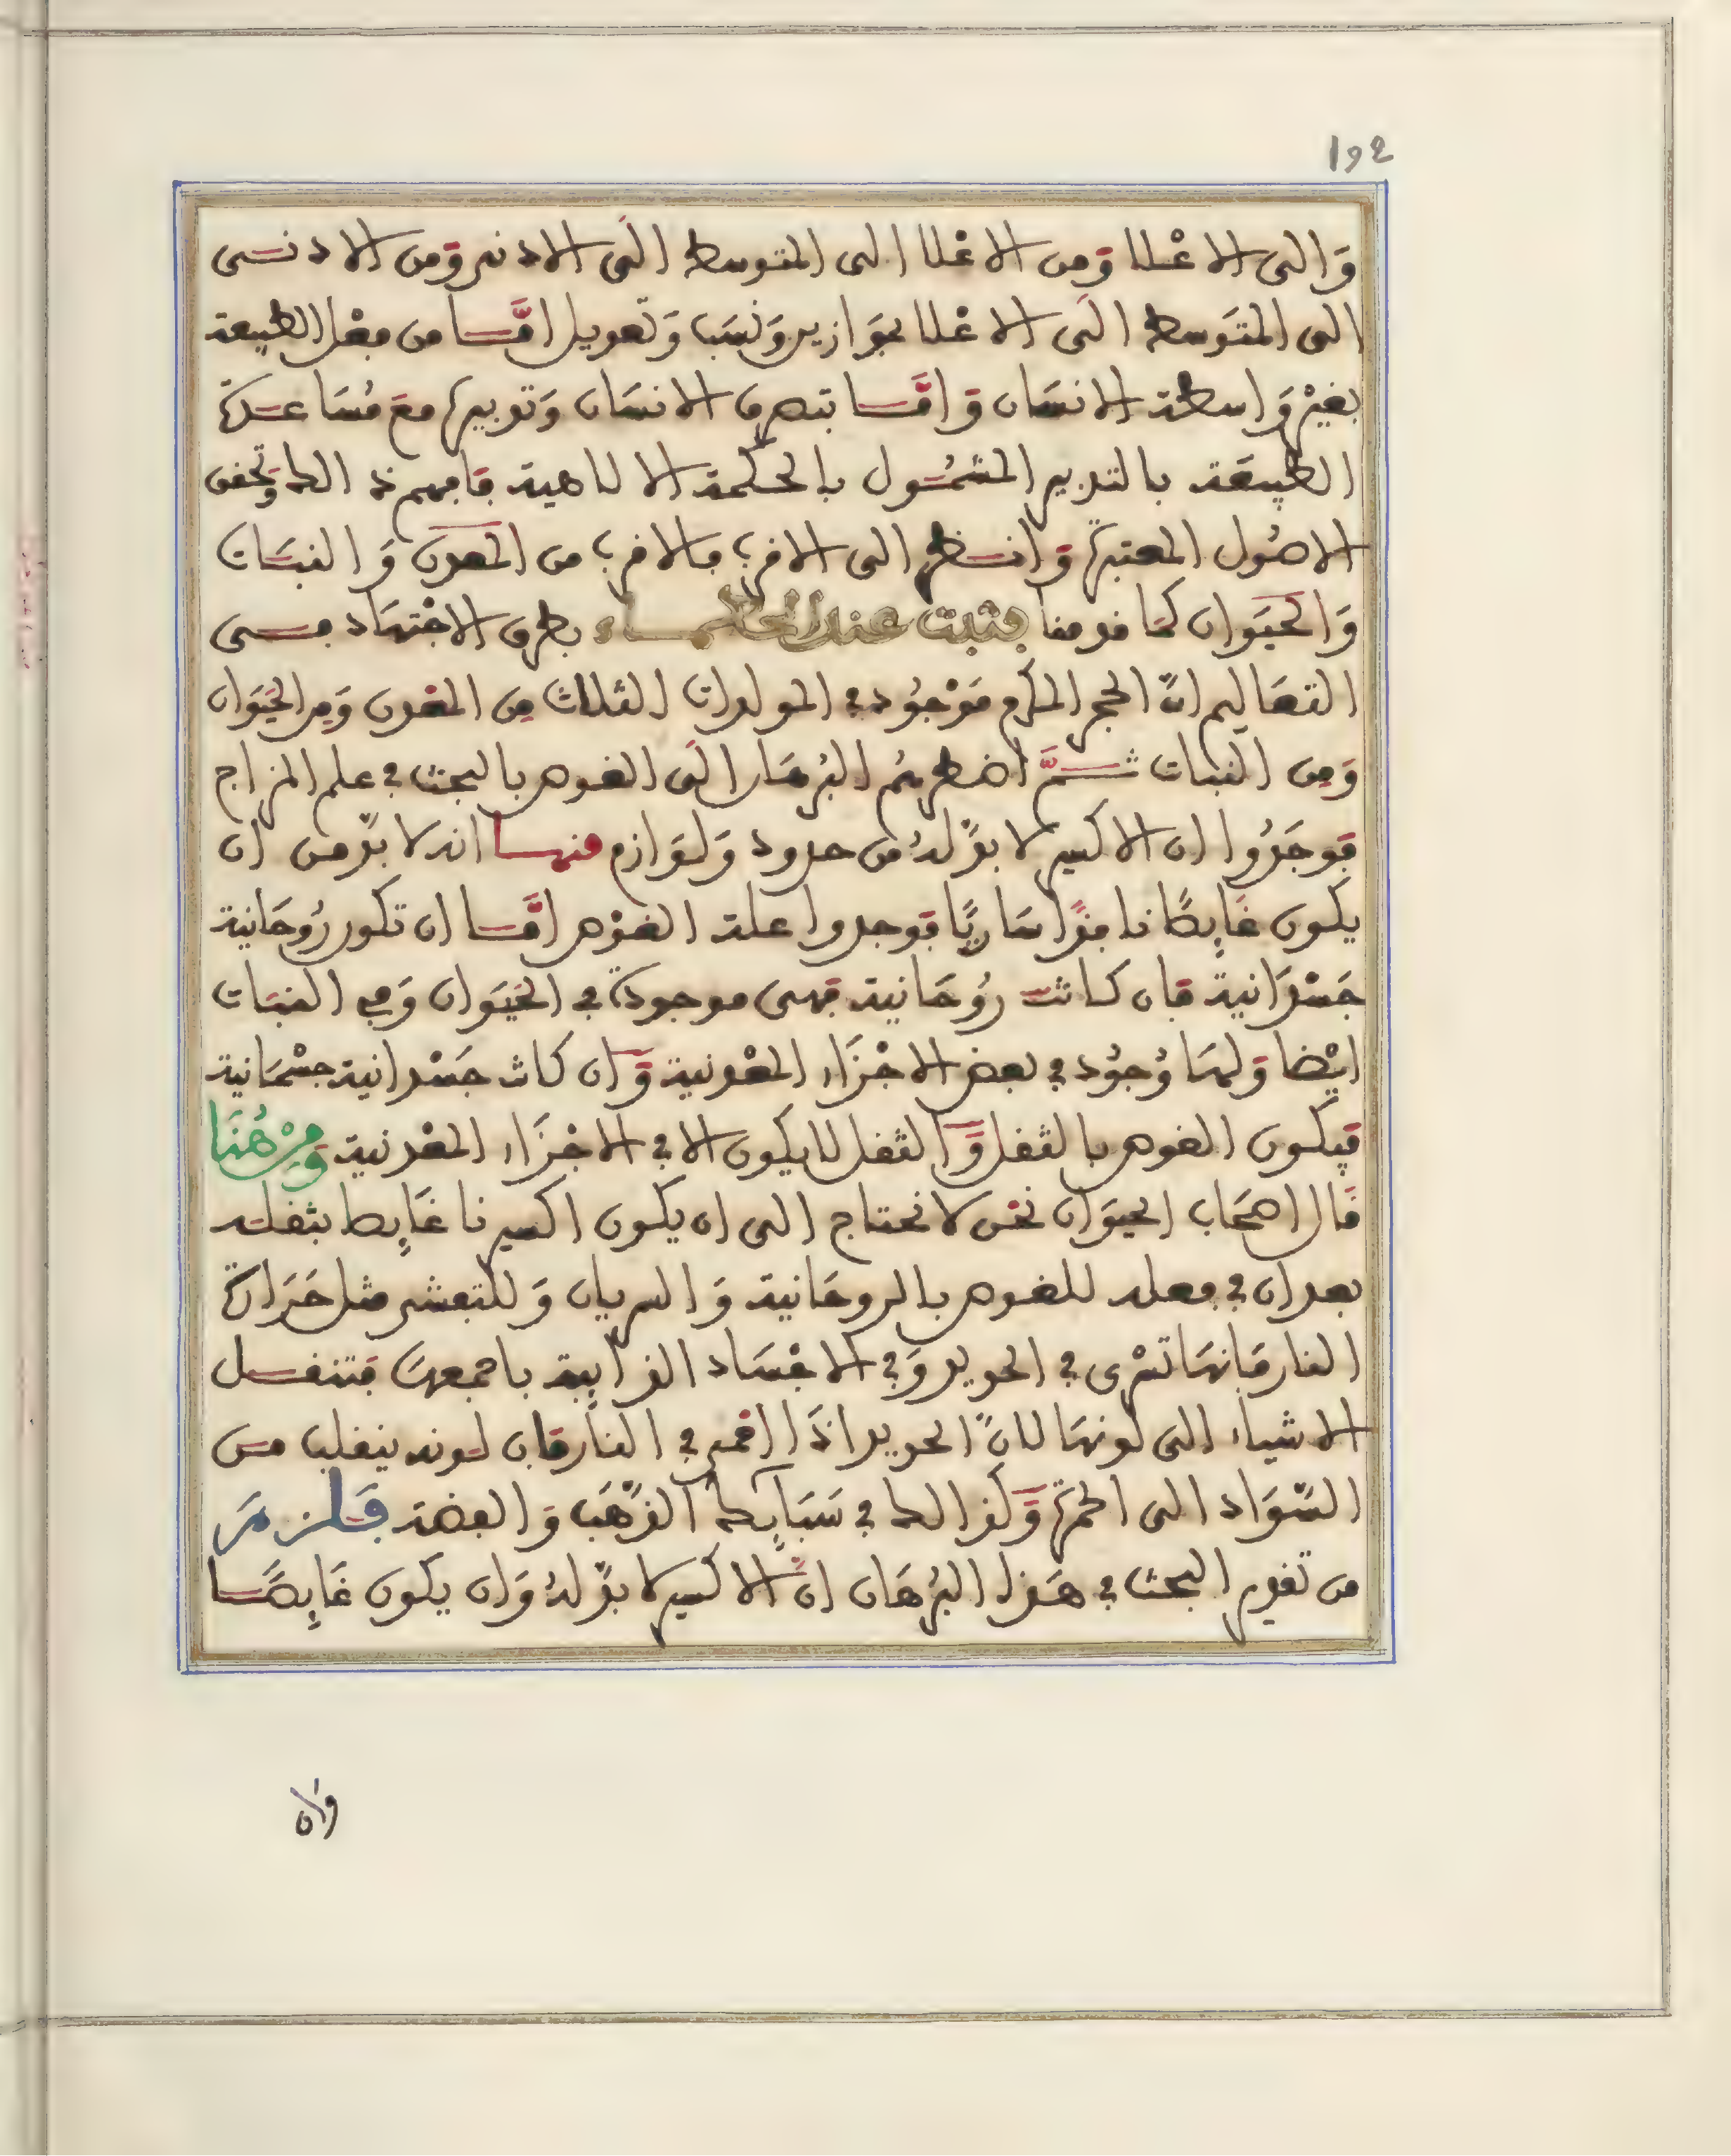 192
وَالى الاعْلا وَمن الاعْلا الى المتوسط الَى الادنى وَمن الادنى
الى المتَوسط الَى الاعْلا بموَازين وَنسَب وَتعويل امَّا من فعْل الطبيعة
بغيْر وَاسطة الانسَان وَامَّا بتصرف الانسَان وَتدبيره معَ مُسَاعدة
الطبيعَة بالتدبير المشمُول بالحكمة الالاهية فافهم ذالك وَتحقق
الاصُول المعتبرة وَانظر الى الاقرب فالاقرب من المعدن وَالنبَات
وَالحيَوان كمَا قدمنا فثبت عند الحكماء بطرق الاجْتهَاد في
التعَاليم انّ الحجر المكرم مَوْجُود في المولدات الثلاث مِن المعْدن وَمِن الحيَوان
وَمِن النبات ثمَّ اضطرهُم البُرهَان الَى الغوص بالبحث في علم المزاج
فوجَدُوا ان الاكسير لا بدَّ لهُ من حدود وَلوَازم منها انه لا بدّ من ان
يكون غَايِصًا نافذًا سَاريًا فوجدوا علة الغوْص امَّا ان تكون رُوحَانية
جَسْدَانية فان كانت رُوحَانية فهى موجودة في الحيَوان وَفي النبَات
ايْضا وَلهَا وُجُود في بعض الاجْزَاء المعْدنية وَان كانت جَسْدانية جسْمَانية
فيكون الغوص بالثقل وَالثقل لا يكون الا في الاجْزَاء المعْدنية وَمِنْ هُنَا
قَال اصحَاب الحيوَان نحْن لا نحتاج الى ان يكون اكسيرنا غَايِصا بثقله
بعد ان في فعله للغوص بالروحَانية وَالسريان وَللتعشر مثل حَرَارة
النار فَانهَا تسْرى في الحديد وَفي الاجْسَاد الذايبة باجمعهَا فتنقل
الاشياء الى لونهَا لانّ الحديد اذَا احمى في النَار فان لونه ينقلب من
السّوَاد الى الحمرة وَكذالك في سَبَايِك الذّهَب وَالفضة فَلزمَ
من تقديم البحث في هَذا البُرهَان انّ الاكسير لا بدّ لهُ وَان يكون غَايِصًا
وَان